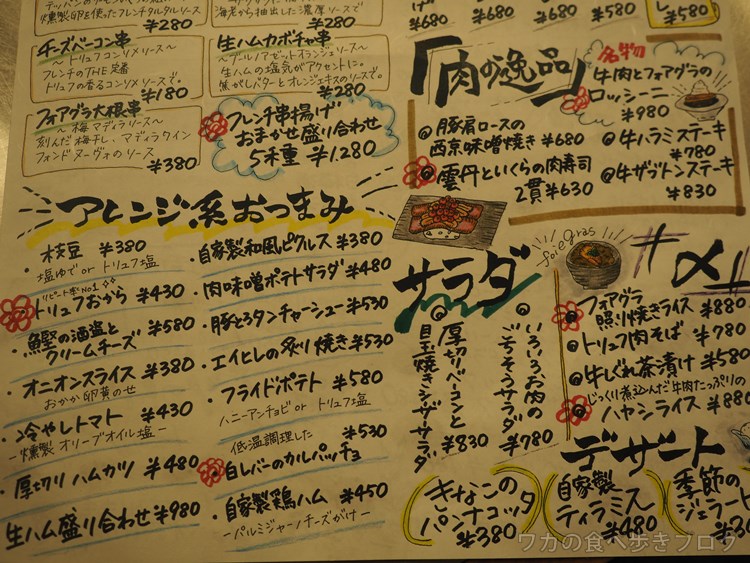 燻製卵を使ったフレンチタルタルソース
¥280
海老から抽出した濃厚ソースで
¥280
チーズベーコン串
～トリュフコンソメソース～
フレンチのTHE定番
トリュフの香るコンソメソースで。
¥180
生ハムカボチャ串
～ブールノアゼットオランジュソース～
生ハムの塩気がアクセントに。
焦がしバターとオレンジエキスのソースで。
¥280
フォアグラ大根串
～梅マディラソース～
刻んだ梅干し、マディラワイン
フォンドヌーヴォのソース
¥380
フレンチ串揚げ
おまかせ盛り合わせ
5種重 ¥1,280
¥680 ¥680 ¥680
¥580 ¥580
¥580
「肉の逸品」
名物
牛肉とフォアグラの
ロッシーニ
¥980
豚肩ロースの
西京味噌焼き ¥680
雲丹といくらの肉寿司
2貫¥630
牛ハラミステーキ
¥780
牛ザブトンステーキ
¥830
アレンジ系おつまみ
・枝豆 ¥380
塩ゆで or トリュフ塩
リピート率No1
トリュフおから ¥430
・鰹の酒盗と
クリームチーズ ¥580
・オニオンスライス ¥380
おかか卵黄のせ
・冷やしトマト ¥430
－燻製オリーブオイル塩－
・厚切りハムカツ ¥480
生ハム盛り合わせ ¥980
・自家製和風ピクルス ¥380
・肉味噌ポテトサラダ ¥480
・豚とろタンチャーシュー ¥530
・エイヒレの炙り焼き ¥530
・フライドポテト ¥580
ハニーアンチョビ or トリュフ塩
低温調理した
白レバーのカルパッチョ ¥530
・自家製鶏ハム ¥450
－パルミジャーノチーズがけ－
サラダ
厚切りベーコンと
目玉焼きシーザーサラダ
¥830
いろいろお肉の
ごちそうサラダ
¥780
foie gras
〆
フォアグラ
照り焼きライス ¥880
トリュフ肉そば ¥780
牛しぐれ茶漬け ¥580
じっくり煮込んだ牛肉たっぷりの
ハヤシライス ¥880
デザート
きなこの
パンナコッタ
¥380
自家製
ティラミス
¥480
季節の
ジェラート
ワカの食べ歩きブログ